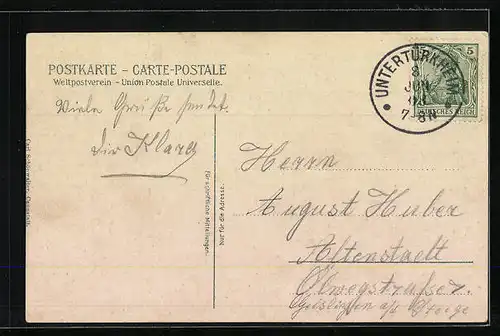 POSTKARTE – CARTE-POSTALE
Weltpostverein – Union Postale Universelle.
Viele Grüße sendet
dir Klara
Für schriftliche Mitteilungen
Nur für die Adresse.
UNTERTÜRKHEIM
8
JUN
7-8N
5
DEUTSCHES REICH
Herrn
August Huber
Altenstadt
Ölwegstraße.
Geislingen a/ Steige